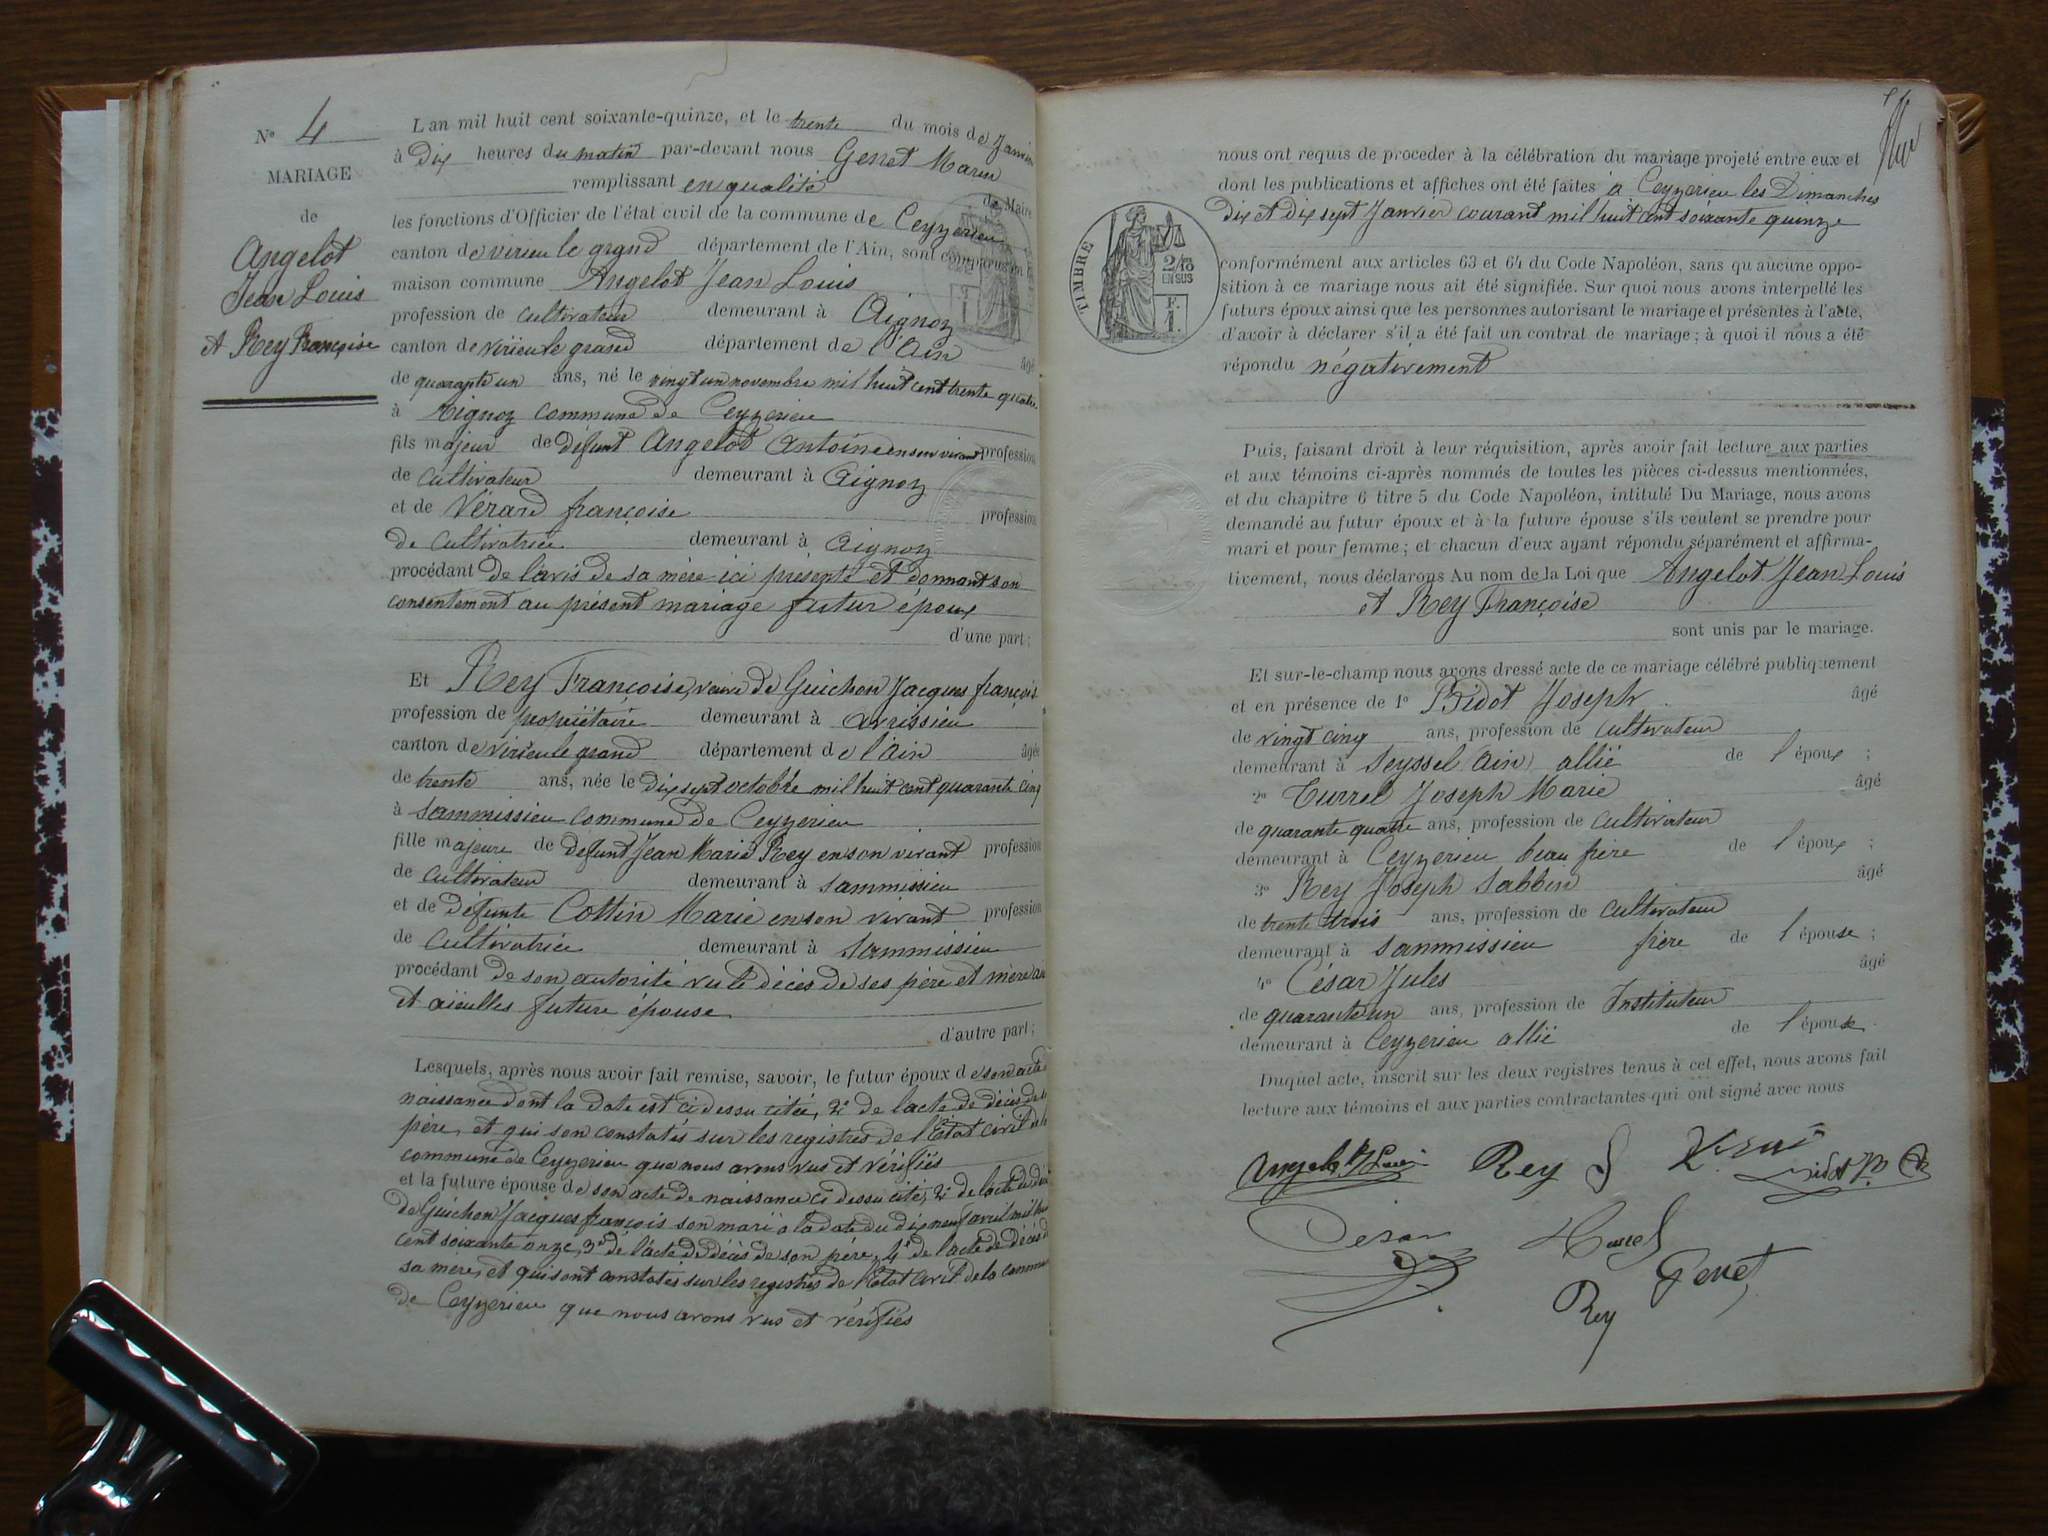 N° 4
MARIAGE
de
Angelot
Jean Louis
et Rey Françoise
L'an mil huit cent soixante-quinze, et le trente du mois de Janvier
à Dix heures du matin par-devant nous Genet Marin
remplissant en qualité de Maire
les fonctions d'Officier de l'état civil de la commune de Ceyzerieu
canton de virieu le grand département de l'Ain, sont comparus en la
maison commune Angelot Jean Louis
profession de cultivateur demeurant à Aignoz
canton de virieu le grand département de l'Ain âgé
de quarante un ans, né le vingt un novembre mil huit cent trente quatre
à Aignoz commune de Ceyzerieu
fils majeur de défunt Angelot Antoine en son vivant profession
de cultivateur demeurant à Aignoz
et de Vérand françoise profession
de cultivatrice demeurant à Aignoz
procédant de l'avis de sa mère ici présente et donnant son
consentement au présent mariage futur époux
d'une part;
Et Rey Françoise, veuve de Guichon Jacques françois
profession de propriétaire demeurant à avrissieu
canton de virieu le grand département de l'Ain âgée
de trente ans, née le Dix sept octobre mil huit cent quarante cinq
à sammissieu commune de Ceyzerieu
fille majeure de defunt Jean Marie Rey en son vivant profession
de cultivateur demeurant à sammissieu
et de défunte Cottin Marie en son vivant profession
de cultivatrice demeurant à sammissieu
procédant de son autorité vu le décès de ses père et mère
et aïeulles future épouse
d'autre part;
Lesquels, après nous avoir fait remise, savoir, le futur époux de son acte
naissance dont la date est ci dessu citée, 2° de l'acte de décès de
père, et qui son constatés sur les registres de l'Etat civil de la
commune de Ceyzerieu que nous avons vus et vérifiés
et la future épouse de son acte de naissance ci dessu cité, 2° de l'acte de
de Guichon Jacques françois son mari à la date du dix neuf avril mil huit
cent soixante onze, 3° de l'acte de décès de son père, 4° de l'acte de décès de
sa mère, et qui sont constatés sur les registres de l'Etat civil de la commune
de Ceyzerieu que nous avons vus et vérifiés
nous ont requis de proceder à la célébration du mariage projeté entre eux et
dont les publications et affiches ont été faites à Ceyzerieu les Dimanches
Dix et Dix sept Janvier courant mil huit cent soixante quinze
TIMBRE
2/10
EN SUS
F.
1.
conformément aux articles 63 et 64 du Code Napoléon, sans qu'aucune oppo-
sition à ce mariage nous ait été signifiée. Sur quoi nous avons interpellé les
futurs époux ainsi que les personnes autorisant le mariage et présentes à l'acte,
d'avoir à déclarer s'il a été fait un contrat de mariage; à quoi il nous a été
répondu négativement
Puis, faisant droit à leur réquisition, après avoir fait lecture aux parties
et aux témoins ci-après nommés de toutes les pièces ci-dessus mentionnées,
et du chapitre 6 titre 5 du Code Napoléon, intitulé Du Mariage, nous avons
demandé au futur époux et à la future épouse s'ils veulent se prendre pour
mari et pour femme; et chacun d'eux ayant répondu séparément et affirma-
tivement, nous déclarons Au nom de la Loi que Angelot Jean Louis
et Rey Françoise
sont unis par le mariage.
Et sur-le-champ nous avons dressé acte de ce mariage célébré publiquement
et en présence de 1° Bidot Joseph âgé
de vingt cinq ans, profession de cultivateur
demeurant à Seyssel (Ain) allié de l'époux;
2° Turrel Joseph Marie âgé
de quarante quatre ans, profession de cultivateur
demeurant à Ceyzerieu beau frère de l'époux;
3° Rey Joseph Sabbin âgé
de trente trois ans, profession de cultivateur
demeurant à sammissieu frère de l'épouse;
4° César Jules âgé
de quarante un ans, profession de Instituteur
demeurant à Ceyzerieu allié de l'épouse.
Duquel acte, inscrit sur les deux registres tenus à cet effet, nous avons fait
lecture aux témoins et aux parties contractantes qui ont signé avec nous
Rey
César
Genet
Rey